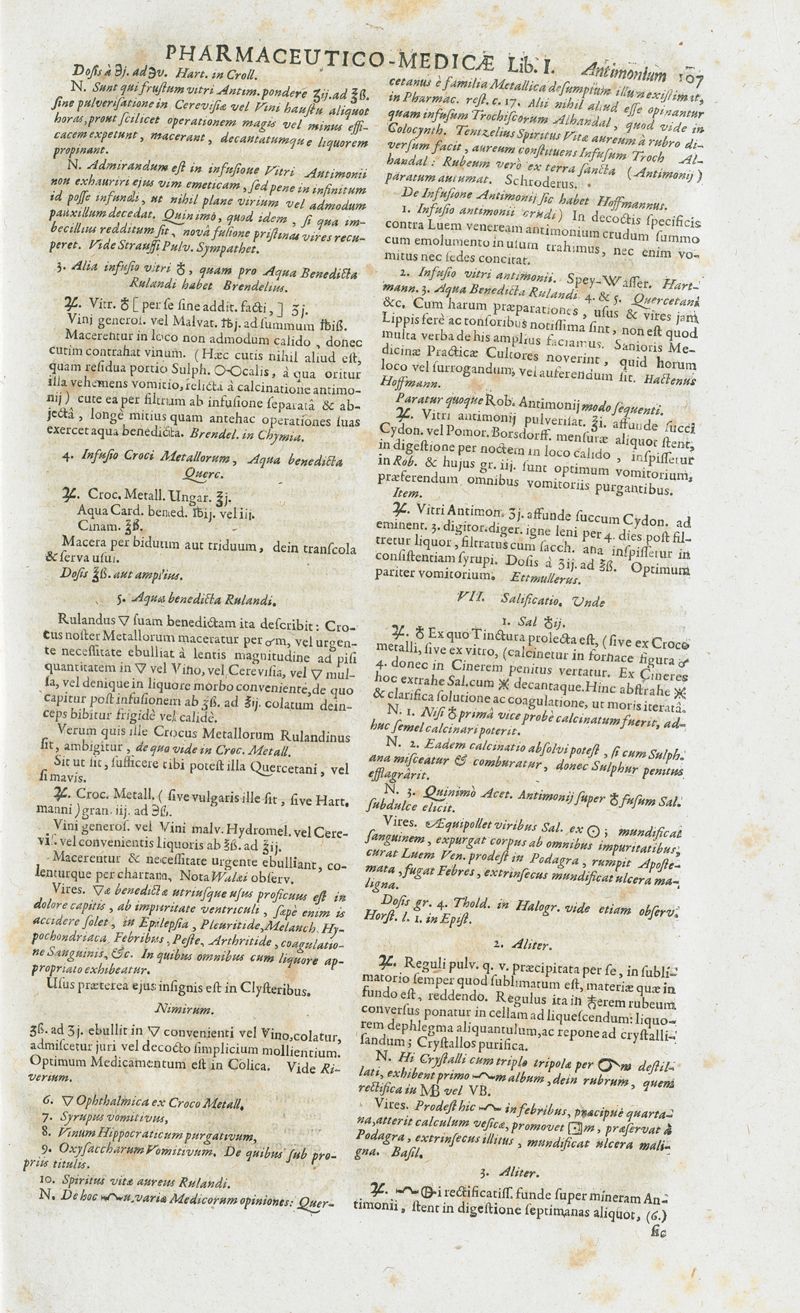 PHARMACEUTICO-MEDICÆ Lib. I. Antimonium 107
Dosis à ℈j. ad ℈v. Hart. in Croll.
N. Sunt qui frustum vitri Antim. pondere ʒij. ad ℥ß.
sine pulverisatione in Cerevisia vel Vini haustu aliquot
horas, prout scilicet operationem magis vel minus effi-
cacem expetunt, macerant, decantatumque liquorem
propinant.
N. Admirandum est in infusione Vitri Antimonii
non exhauriri ejus vim emeticam, sed pene in infinitum
id posse infundi, ut nihil plane virium vel admodum
pauxillum decedat. Quinimò, quod idem, si qua im-
becillius redditum sit, novâ fusione pristinas vires recu-
peret. Vide Straussi Pulv. Sympathet.
3. Alia infusio vitri ♁, quam pro Aqua Benedicta
Rulandi habet Brendelius.
℞. Vitr. ♁ [per se sine addit. facti,] ʒj.
Vini generos. vel Malvat. ℔j. ad summum ℔iß.
Macerentur in loco non admodum calido, donec
cutim contrahat vinum. (Hæc cutis nihil aliud est,
quam residua portio Sulph. calis, à qua oritur
illa vehemens vomitio, relicta à calcinatione antimo-
nij) cute ea per filtrum ab infusione separatâ & ab-
jectâ, longè mitius quam antehac operationes suas
exercet aqua benedicta. Brendel. in Chymia.
4. Infusio Croci Metallorum, Aqua benedicta
Querc.
℞. Croc. Metall. Ungar. ʒj.
Aqua Card. bened. ℔ij. vel iii.
Cinam. ℥ß.
Macera per biduum aut triduum, dein transcola
& serva usui.
Dosis ℥ß. aut amplius.
5. Aqua benedicta Rulandi.
Rulandus ▽ suam benedictam ita describit: Cro-
cus noster Metallorum maceratur per m, vel urgen-
te necessitate ebulliat à lentis magnitudine ad pisi
quantitatem in ▽ vel Vino, vel Cerevisia, vel ▽ mul-
sa, vel denique in liquore morbo conveniente, de quo
capitur post infusionem ab ℥ß. ad ℥ij. colatum dein-
ceps bibitur frigidè vel calidè.
Verum quis ille Crocus Metallorum Rulandinus
sit, ambigitur, de quo vide in Croc. Metall.
Sit ut sit, sufficere tibi potest illa Quercetani, vel
si mavis.
℞. Croc. Metall. (sive vulgaris ille sit, sive Hart,
manni) gran. iij. ad ℈ß.
Vini generos. vel Vini malv. Hydromel. vel Cere-
vis. vel convenientis liquoris ab ℥ß. ad ℥ij.
Macerentur & necessitate urgente ebulliant, co-
lenturque per chartam, Nota Walæi observ.
Vires. ▽æ benedictæ utriusque usus proficuus est in
dolore capitis, ab impuritate ventriculi, sæpè enim is
accidere solet, in Epilepsia, Pleuritide, Melanch. Hy-
pochondriaca, Febribus, Peste, Arthritide, coagulatio-
ne Sanguinis, &c. In quibus omnibus cum liquore ap-
propriato exhibeatur.
Usus præterea ejus insignis est in Clysteribus.
Nimirum.
ʒß. ad ʒj. ebullit in ▽ convenienti vel Vino, colatur,
admiscetur juri vel decocto simplicium mollientium.
Optimum Medicamentum est in Colica. Vide Ri-
verium.
6. ▽ Ophthalmica ex Croco Metall.
7. Syrupus vomitivus,
8. Vinum Hippocraticum purgativum,
9. Oxysaccharum Vomitivum. De quibus sub pro-
priis titulis.
10. Spiritus vitæ aureus Rulandi.
N. De hoc u, varia Medicorum opiniones: Quer-
cetanus è familia Metallica desumptum illum existimat,
in Pharmac. rest. c. 17. Alii nihil aliud esse opinantur
quam infusum Trochiscorum Alhandal, quod vide in
Colocynth. Tentzelius Spiritus Vitæ aureum à rubro di-
versum facit, aureum constituens Infusum Troch Al-
handal: Rubeum verò ex terra sancta (Antimonij)
paratum autumat. Schroderus.
De Infusione Antimonij sic habet Hoffmannus.
1. Infusio antimonii crudi) In decoctis specificis
contra Luem veneream antimonium crudum summo
cum emolumento in usum trahimus, nec enim vo-
mitus nec sedes concitat.
2. Infusio vitri antimonii. Spey-Wasser. Hart-
mann. 3. Aqua Benedicta Rulandi 4. & 5. Quercetani
&c. Cum harum præparationes, usus & vires jam
Lippis ferè ac tonsoribus notissima sint, non est quod
multa verba de his amplius faciamus. Sanioris Me-
dicinæ Practicæ Cultores noverint, quid horum
loco vel surrogandum, vel auferendum sit. Hactenus
Hoffmann.
Paratur quoque Rob. Antimonij modo sequenti.
℞. Vitri antimonij pulverisat. ℥i. affunde succi
Cydon. vel Pomor. Borsdorff. mensuræ aliquot stent,
in digestione per noctem in loco calido, inspissetur
in Rob. & hujus gr. iij. sunt optimum vomitorium,
præferendum omnibus vomitoriis purgantibus.
Item.
℞. Vitri Antimon. ʒj. affunde succum Cydon. ad
eminent. 3. digitor. diger. igne leni per 4. dies post fil-
tretur liquor, filtratus cum sacch. ana inspissetur in
consistentiam syrupi. Dosis à ʒij. ad ℥ß. Optimum
pariter vomitorium. Ettmullerus.
VII. Salificatio. Unde
1. Sal ♁ij.
℞. ♁ Ex quo Tinctura prolecta est, (sive ex Croco
metalli, sive ex vitro, (calcinetur in fornace figura
4. donec in Cinerem penitus vertatur. Ex Cineres
hoc extrahe Sal. cum decantaque. Hinc abstrahe
& clarifica solutione ac coagulatione, ut moris iterata.
N. 1. Nisi ♁ prima vice probè calcinatum fuerit, ad-
huc semel calcinari poterit.
N. 2. Eadem calcinatio absolvi potest, si cum Sulph.
ana misceatur & comburatur, donec Sulphur penitus
efflagrârit.
N. 3. Quinimò Acet. Antimonij super ♁ fusum Sal.
subdulce elicit.
Vires. Æquipollet viribus Sal. ex ☉; mundificat
sanguinem, expurgat corpus ab omnibus impuritatibus,
curat Luem Ven. prodest in Podagra, rumpit Aposte-
mata, fugat Febres, extrinsecus mundificat ulcera ma-
ligna.
Dosis gr. 4. Thold. in Halogr. vide etiam observ.
Horst. l. 1. in Epist.
2. Aliter.
℞. Reguli pulv. q. v. præcipitata per se, in subli-
matorio semper quod sublimatum est, materiæ quæ in
fundo est, reddendo. Regulus ita in ♁erem rubeum
conversus ponatur in cellam ad liquescendum: liquo-
rem dephlegma aliquantulum, ac repone ad crystalli-
sandum; Crystallos purifica.
N. Hi Crystalli cum triplo tripola per m destil-
lati, exhibent primo m album, dein rubrum, quem
rectifica in MB vel VB.
Vires. Prodest hic in febribus, præcipuè quarta-
na, atterit calculum vesicæ, promovet m, præservat à
Podagra, extrinsecus illitus, mundificat ulcera mali-
gna. Basil.
3. Aliter.
℞. i rectificatiss. funde super mineram An-
timonii, stent in digestione septimanas aliquot, (6.)
sic